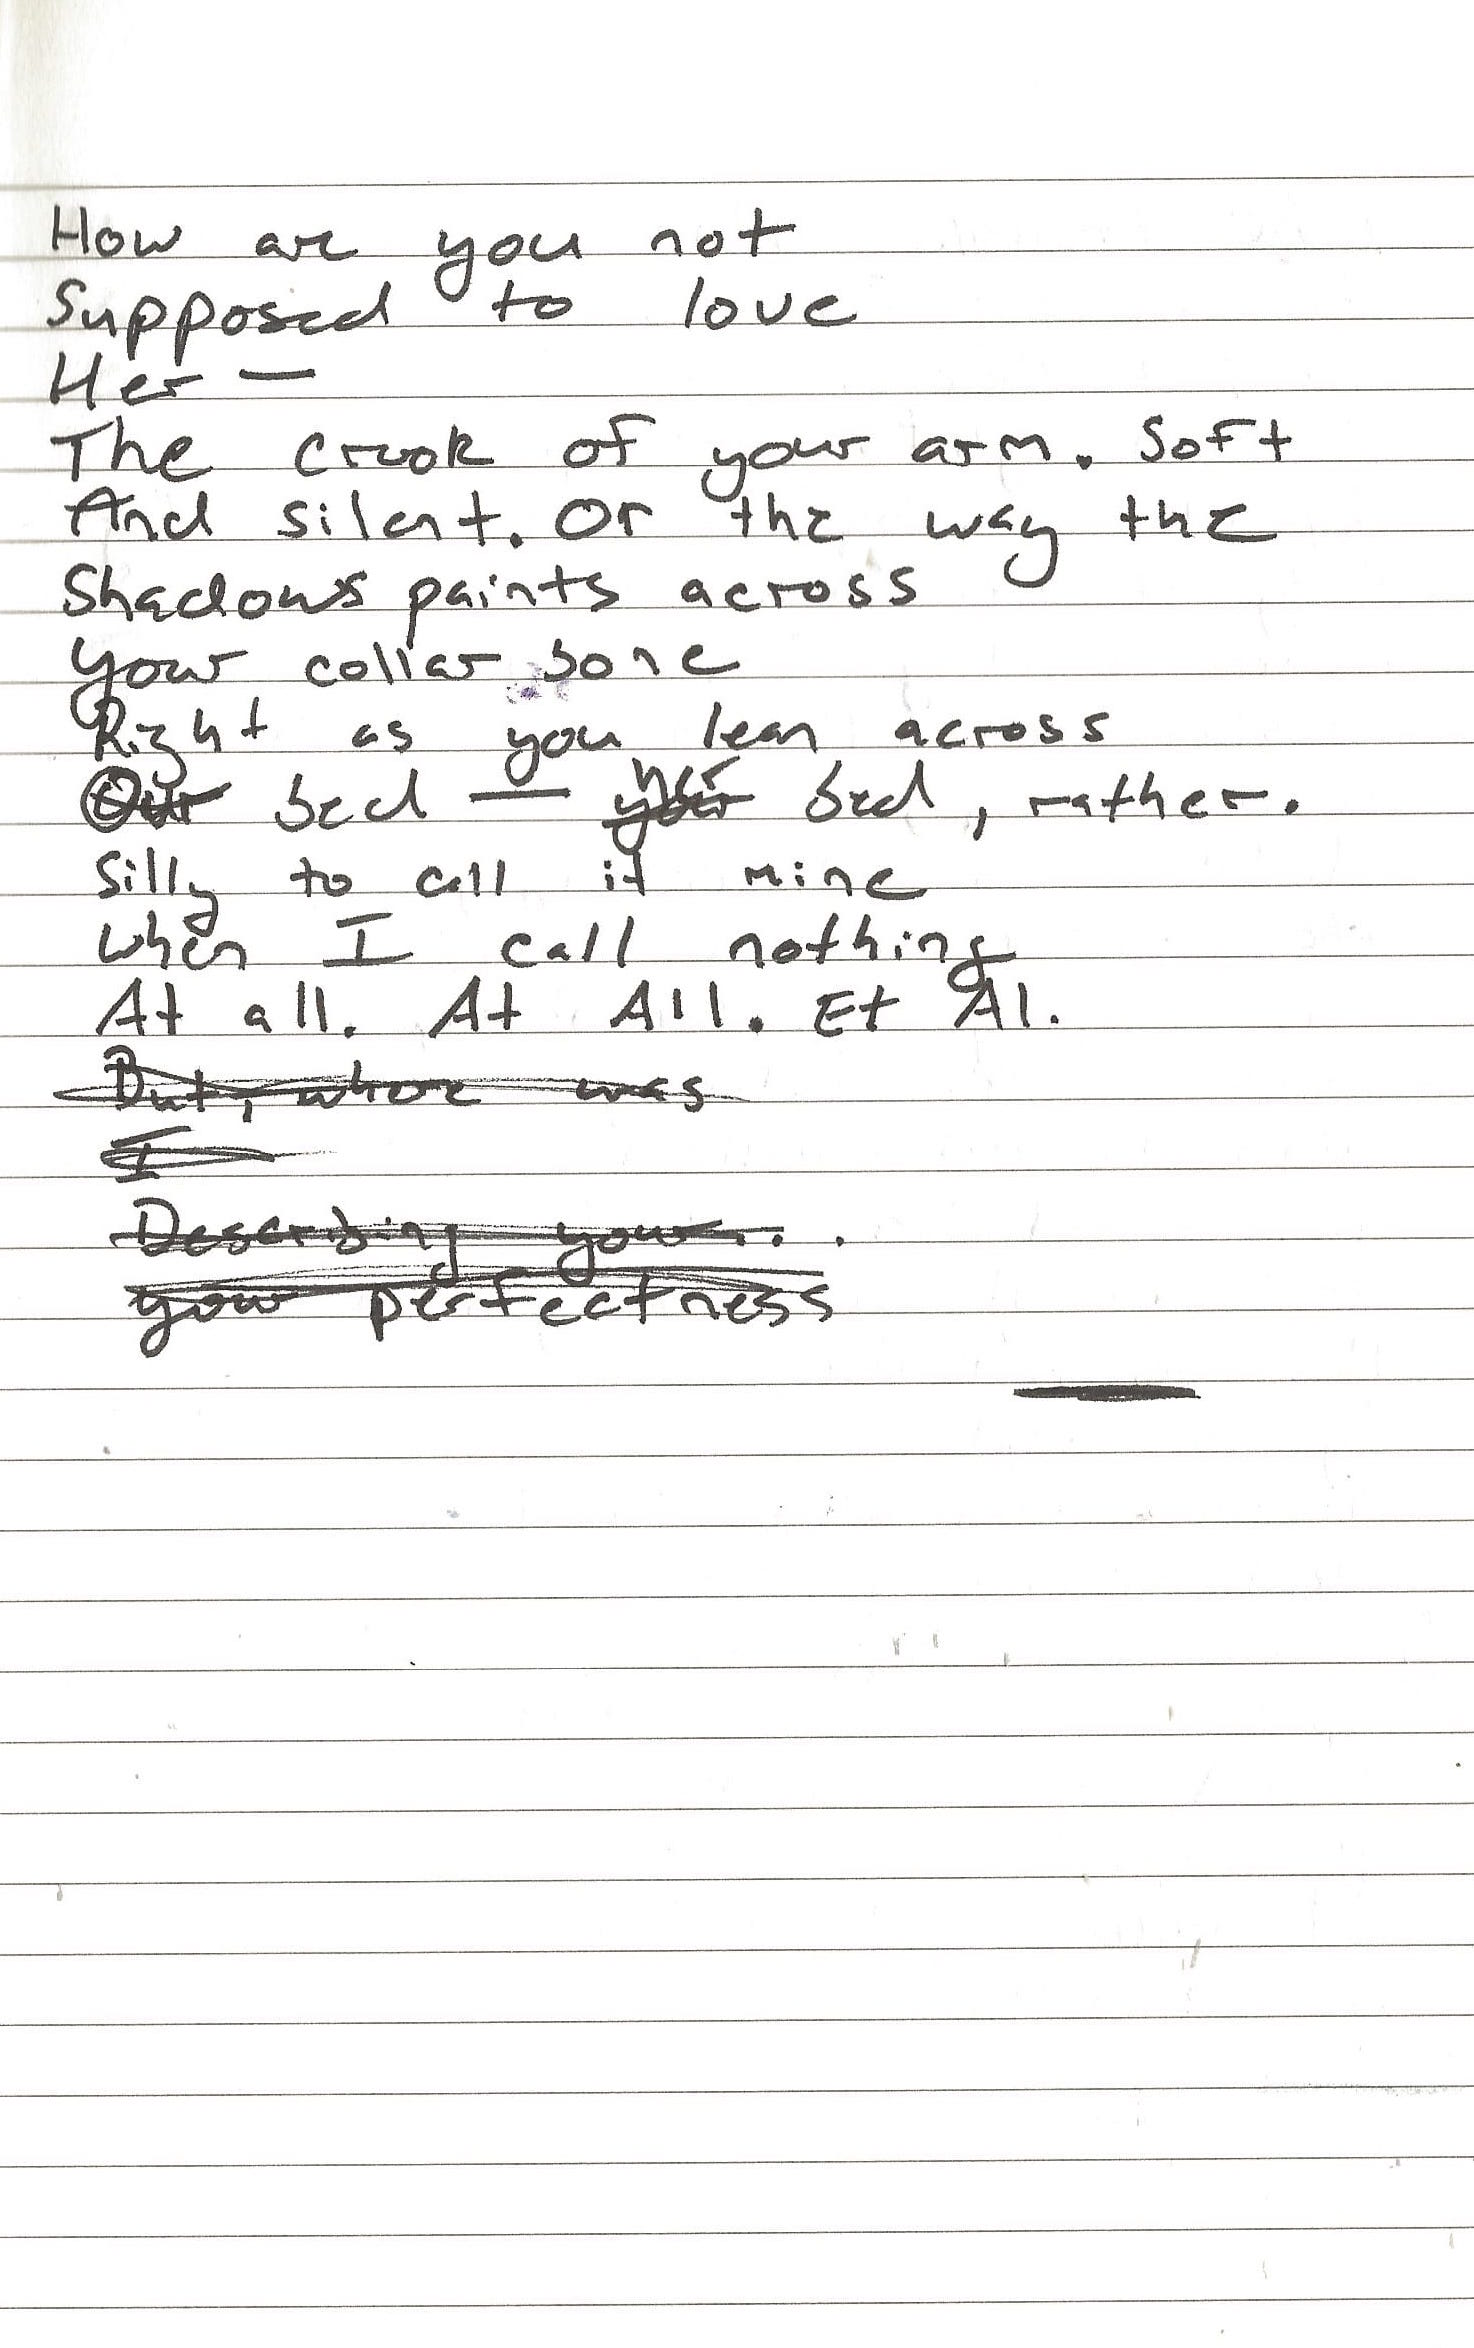 How are you not
Supposed to love
Her —
The crook of your arm. Soft
And silent. Or the way the
Shadows paints across
your collar bone
Right as you lean across
Our bed — her bed, rather.
Silly to call it mine
when I call nothing
At all. At All. Et Al.
But, where was
I
Describing your...
your perfectness